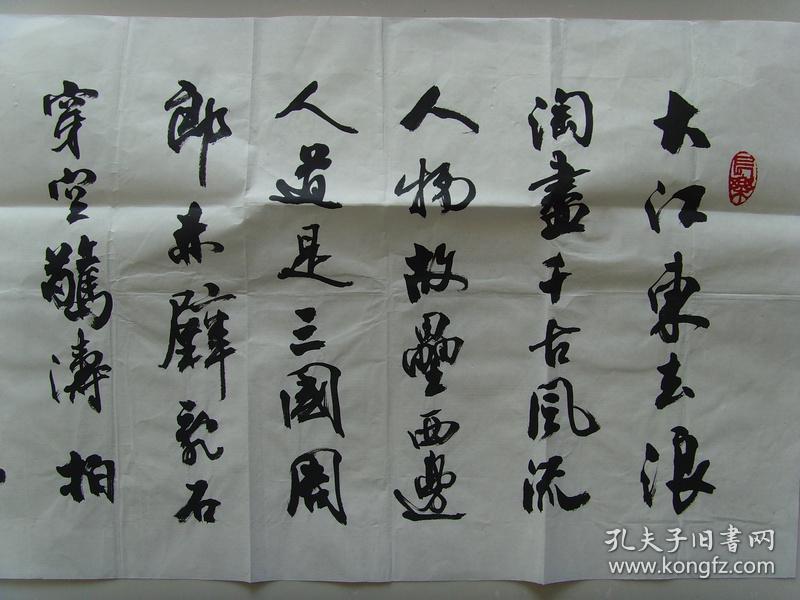 大江東去浪
淘盡千古風流
人物故壘西邊
人道是三國周
郎赤壁亂石
穿空驚濤拍
孔夫子旧书网
www.kongfz.com